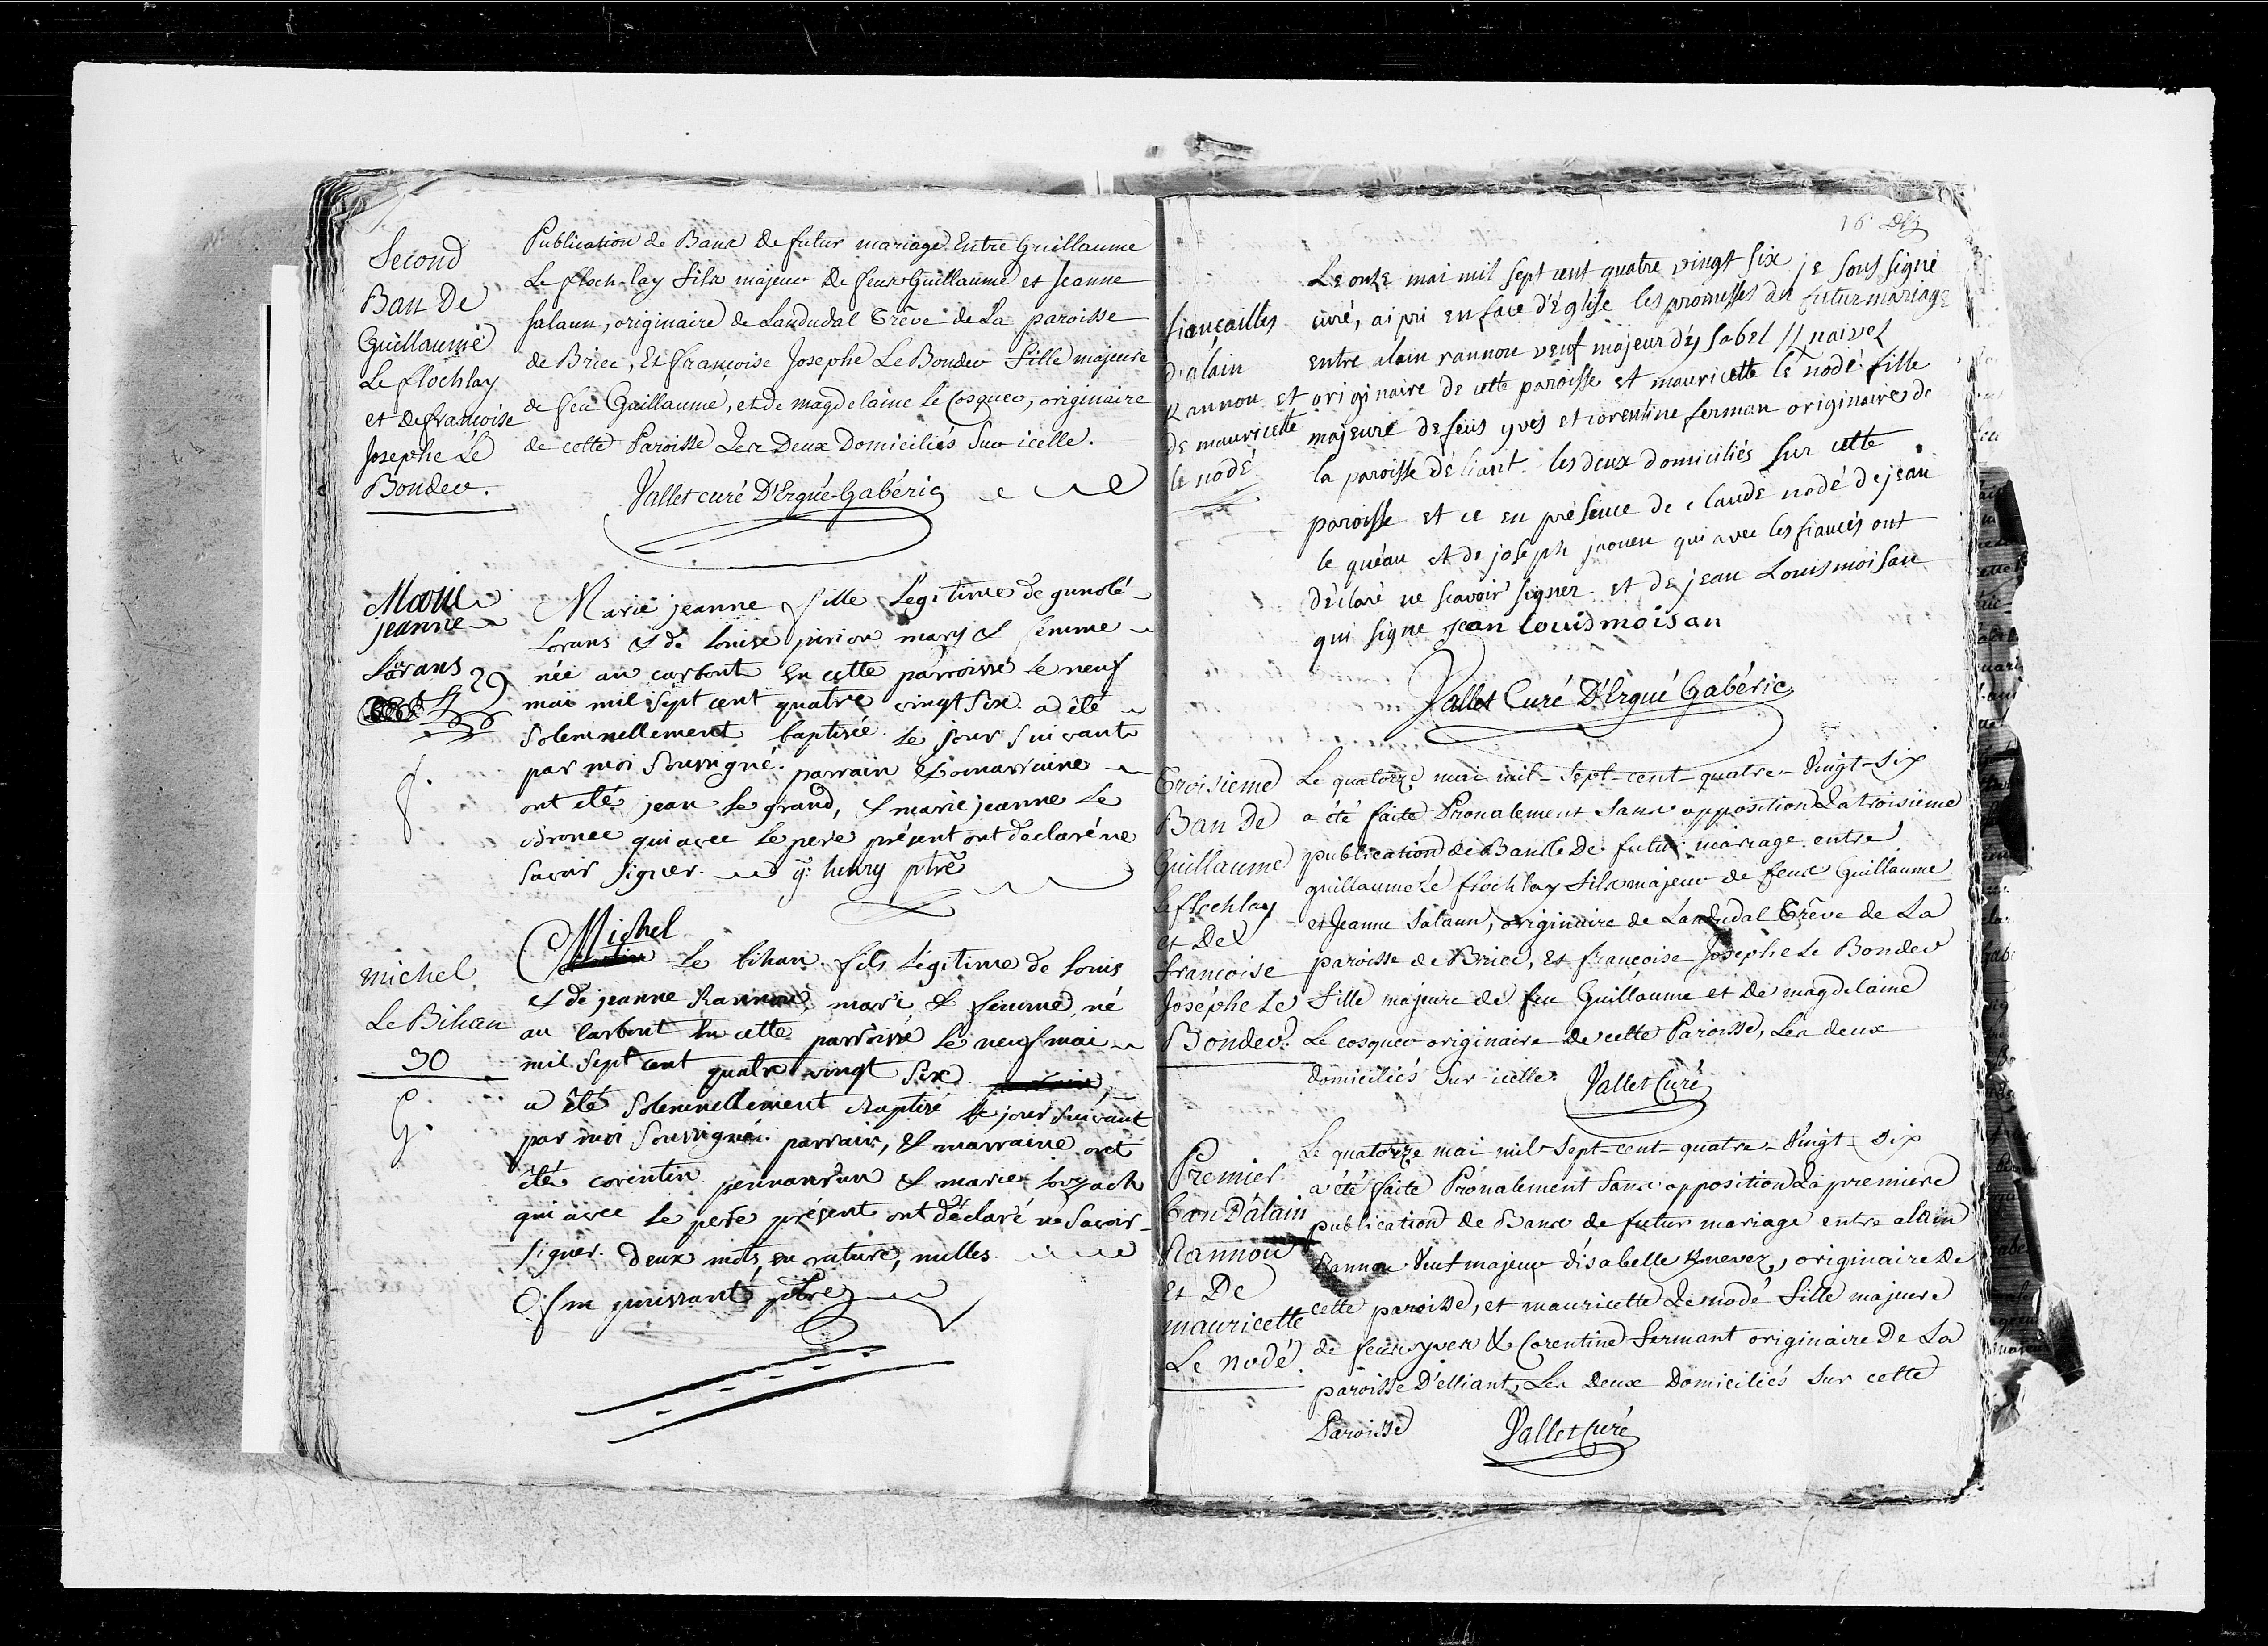 Second
Ban De
Guillaume
Le flochlay
et de francoise
Josephe Le
Bondev.
Publication de Bans De futur mariage Entre Guillaume
Le floch-lay fils majeur De feus Guillaume et Jeanne
Salaun, originaire de Landudal Trêve de La paroisse
de Briec, Et françoise Josephe Le Bondev fille majeure
de feu Guillaume, et de magdelaine Le Cosquev, originaire
de cette Paroisse Les Deux Domiciliés Sur icelle.
Vallet curé D'Ergué-Gabéric
Marie
jeanne
Lorans
29
Marie jeanne fille Légitime de gunolé
Lorans & de Louise mary & femme
née au carbont En cette parroisse le neuf
mai mil sept cent quatre vingt six a été
solemnellement baptisée le jour suivant
par moi soussigné. parrain & marraine
ont été jean le grand, & marie jeanne Le
qui avec le pere présent ont déclaré ne
savoir signer. y. henry ptre
michel
Le Bihan
30
G.
Michel
Le bihan fils Légitime de Louis
& de jeanne Rannou mari & femme, né
au Carbont En cette parroisse le neuf mai
mil sept cent quatre vingt six
a été solemnellement baptisé le jour suivant
par moi soussigné. parrain, & marraine ont
été corentin pennanrun & marie
qui avec le pere présent ont déclaré ne savoir
signer. deux mots en rature, nulles
ptre
16
fiançailles
d'alain
Rannou et
de mauricette
le nodé
Le onze mai mil sept cent quatre vingt six je soussigné
curé, ai pri en face d'église les promesses du futur mariage
entre alain rannou veuf majeur d'ysabel
originaire de cette paroisse et mauricette le nodé fille
majeure de feus yves et corentine ferman originaire de
la paroisse d'eliant. les deux domiciliés sur cette
paroisse et ce en présence de claude nodé de jean
le quéau et de joseph jaouen qui avec les fiancés ont
déclaré ne scavoir signer et de jean Louis moisan
qui signe jean louis moisan
Vallet Curé D'Ergué Gabéric
Troisieme
Ban De
Guillaume
Le flochlay
et De
francoise
Joséphe Le
Bondev.
Le quatorze mai mil-sept-cent-quatre-vingt-six
a été faite Pronalement sans opposition La troisiéme
publication de Bans De futur mariage entre
guillaume Le floch lay fils majeur de feus Guillaume
et Jeanne Salaun, originaire de Landudal Trêve de La
paroisse de Briec, Et françoise Josephe Le Bondev
fille majeure de feu Guillaume et De magdelaine
Le cosquev originaire de cette Paroisse, Les deux
domiciliés Sur-icelle. Vallet Curé
Premier
Ban D'alain
Rannou
Et De
mauricette
Le nodé.
Le quatorze mai mil sept-cent-quatre-vingt-six
a été faite Pronalement sans opposition La premiere
publication de Bans de futur mariage entre alain
Rannou Veuf majeur d'isabelle Knevez, originaire De
cette paroisse, et mauricette Le nodé fille majeure
de feus yves & Corentine fermant originaire De La
paroisse D'elliant, Les Deux Domiciliés Sur cette
Paroisse Vallet Curé